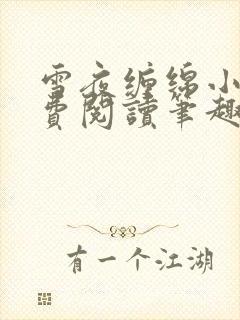 雪夜缠绵小
费阅读筆趣
有一个江湖